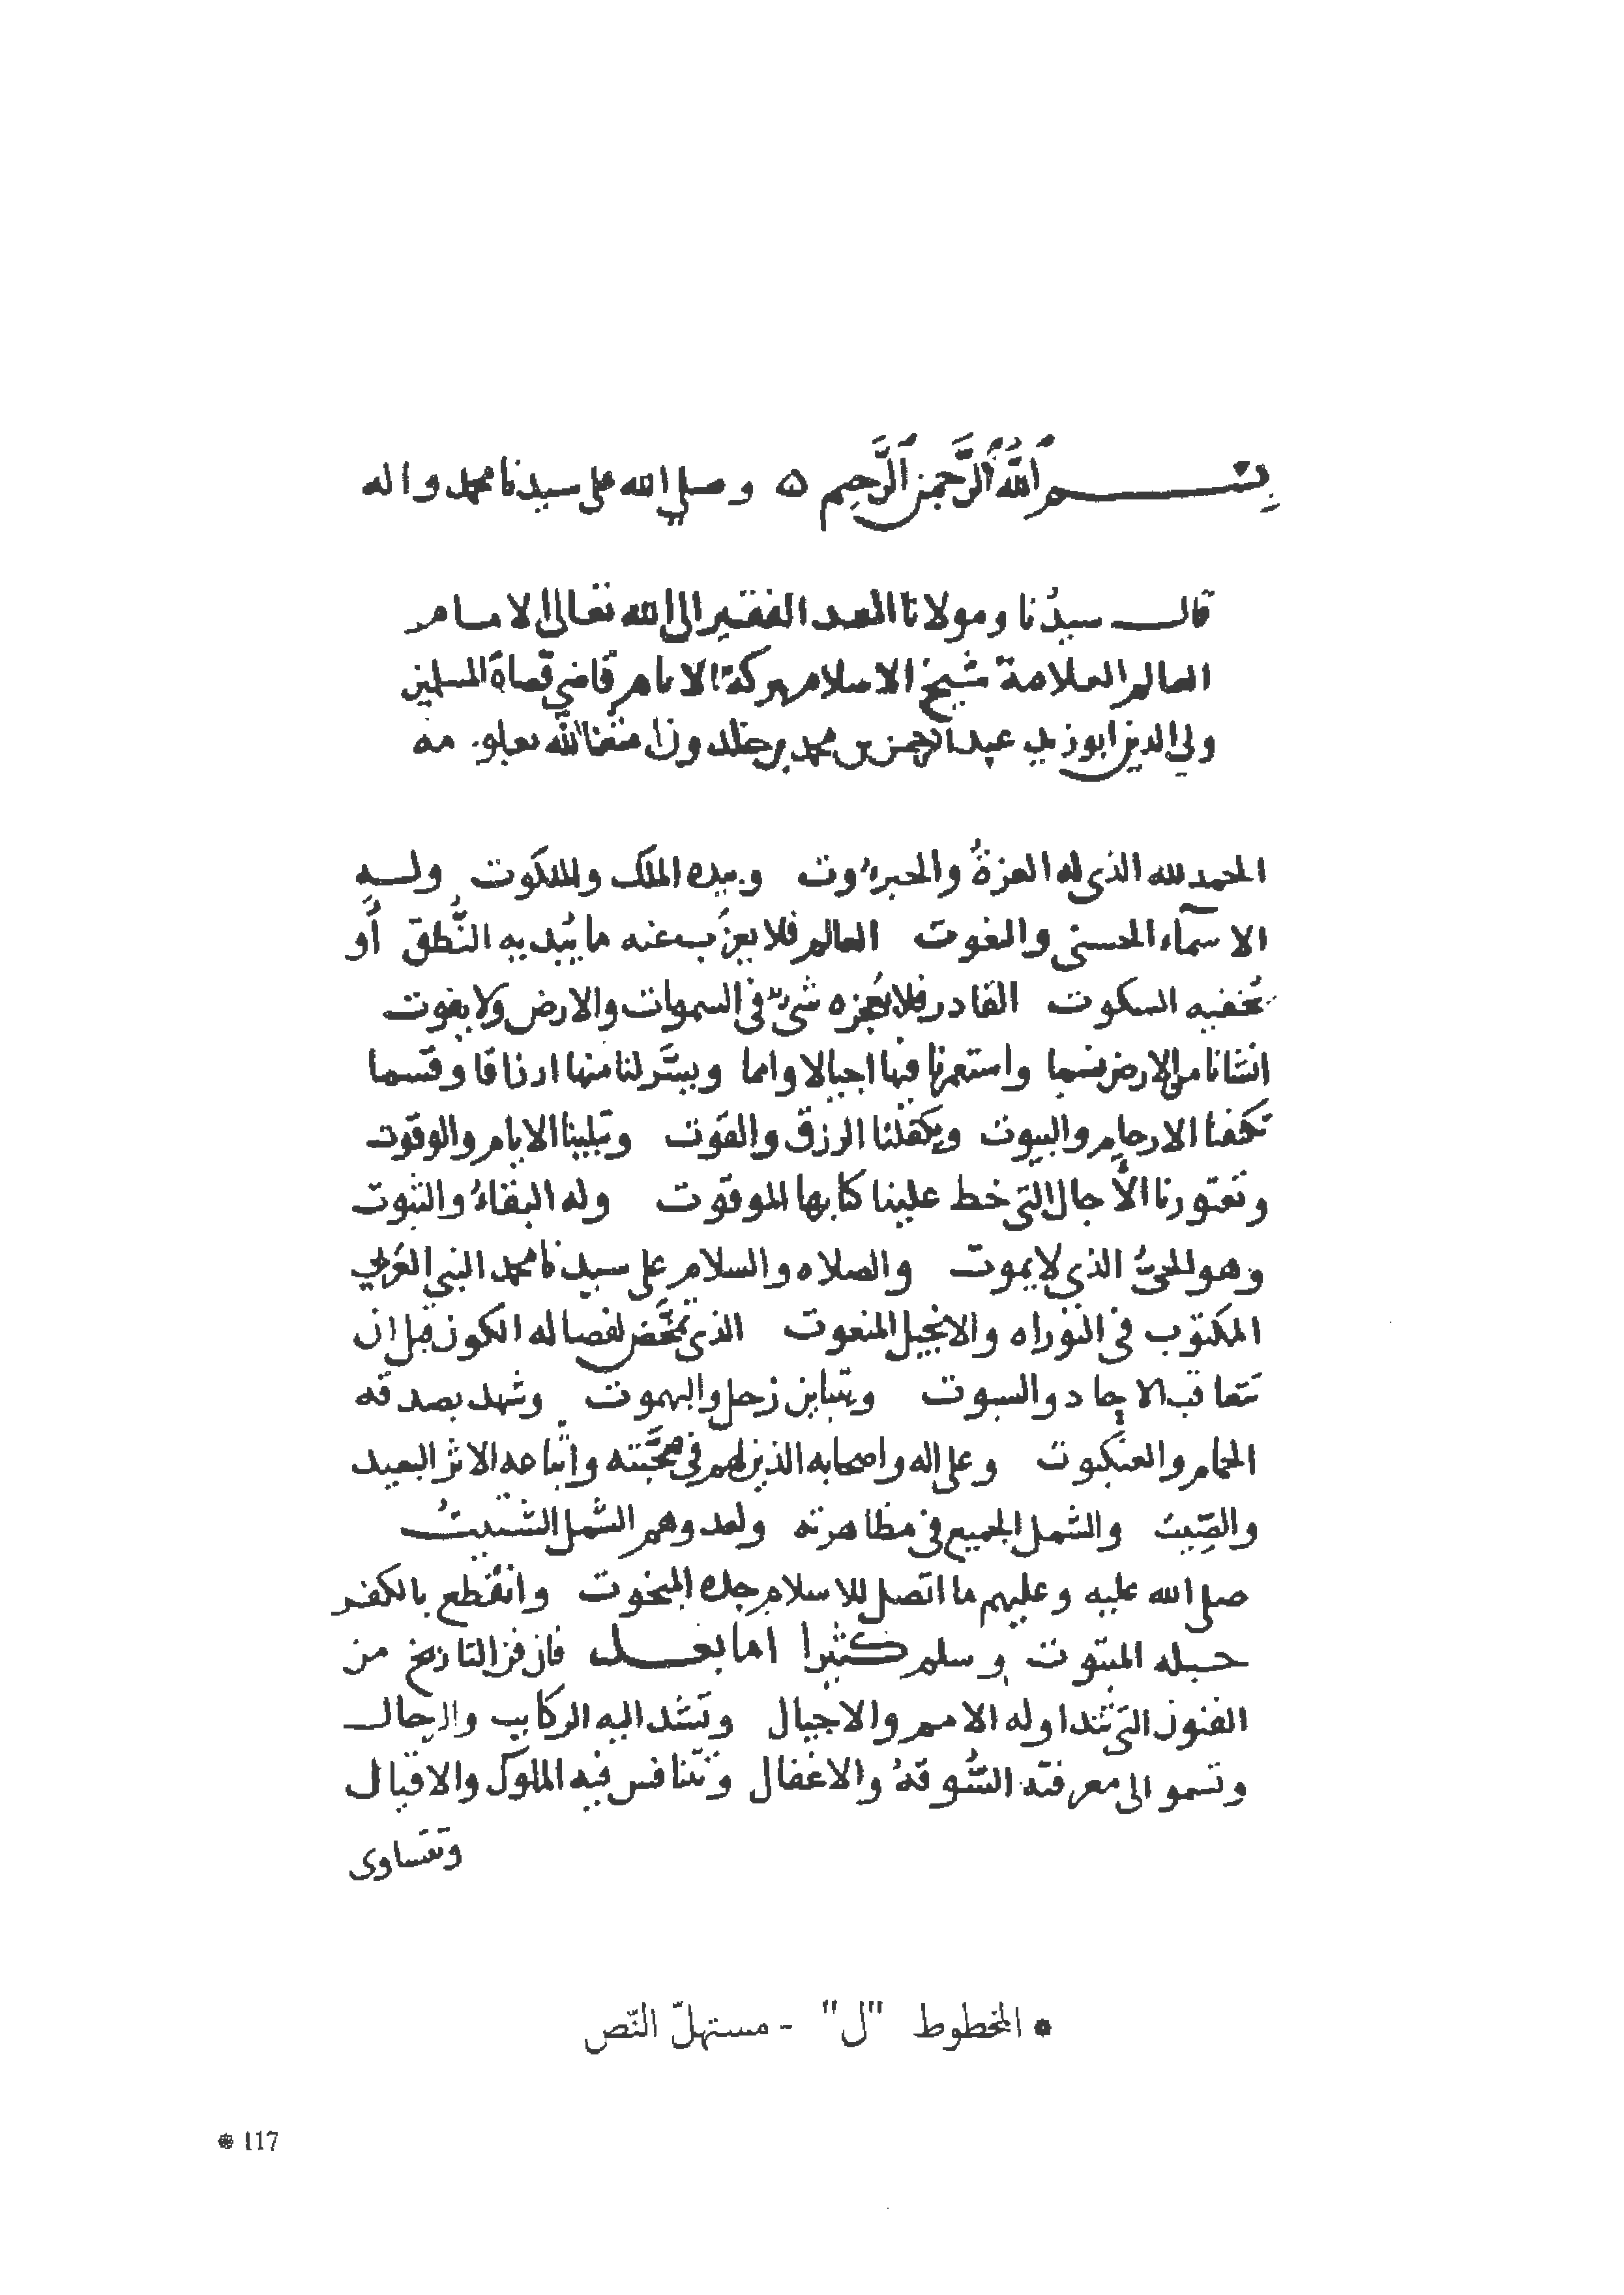 بسم اللهُ الرَّحمن الرَّحيم ه وصلى الله على سيدنا محمد واله
قال سيدُنا ومولانا العبد الفقير الى الله تعالى الامام
العالم العلامة شيخ الاسلام بركة الانام قاضي قضاة المسلمين
ولي الدين ابو زيد عبد الرحمن بن محمد بن خلدون نفعنا الله بعلومه
الحمد لله الذى له العزةُ والجبروت وبيده الملك والملكوت وله
الاسمآء الحسنى والنعوت العالم فلا يعزُب عنه ما يُبديه النُّطق أو
يُخفيه السكوت القادر فلا يُعجزه شىء فى السموات والارض ولا يفوت
انشانا من الارض نسما واستعمرنا فيها اجيالا وامما ويسَّر لنا منها ارزاقا وقسما
تكنفنا الارحام والبيوت ويكفلنا الرزق والقوت وتبلينا الايام والوقوت
وتعتورنا الأجال التى خط علينا كتابها الموقوت وله البقاءُ والثبوت
وهو الحىُّ الذى لا يموت والصلاه والسلام على سيدنا محمد النبى العَربي
المكتوب فى التوراه والانجيل المنعوت الذى تمخَّض لفصاله الكون قبل ان
تتعاقب الاحاد والسبوت ويتباين زحل والبهموت وشهد بصدقه
الحمام والعنكبوت وعلى اله واصحابه الذين لهم فى صحبَّته واتباعه الاثر البعيد
والصِّيت والشمل الجميع فى مظاهرته ولعدوهم الشمل الشتيتُ
صلى الله عليه وعليهم ما اتصل للاسلام جده المبخوت وانقطع بالكفر
حبله المبتوت وسلم كثيرا اما بعد فان فن التاريخ من
الفنون التى تتداوله الامم والاجيال وتشد اليه الركايب والرحال
وتسموا الى معرفته السُّوقةُ والاغفال وتتنافس فيه الملوك والاقيال
وتتساوى
* المخطوط "ل" - مستهلّ النّص
* 117